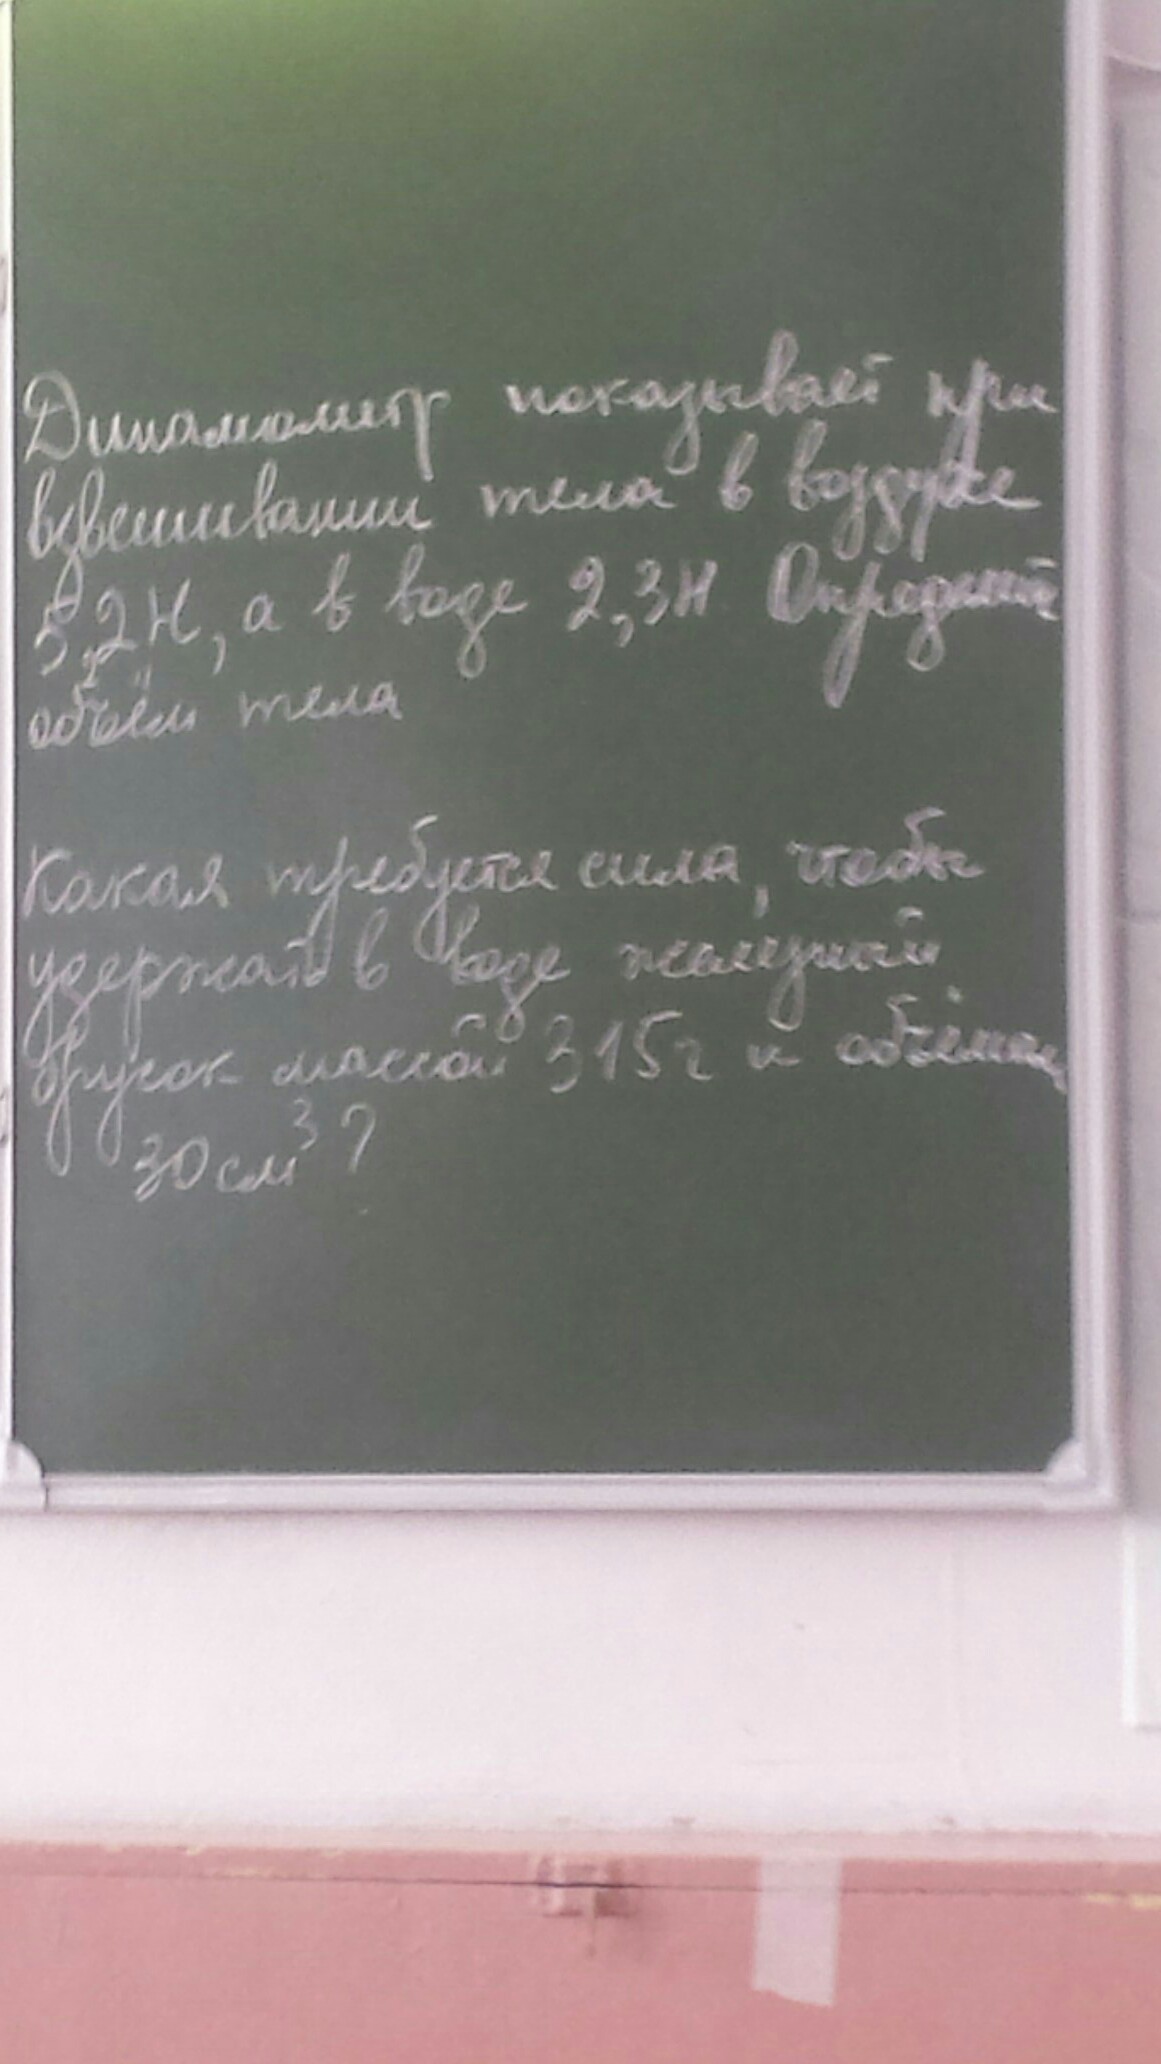 Динамометр показывает при
взвешивании тела в воздухе
5,2Н, а в воде 2,3Н Определить
объём тела
Какая требуется сила, чтобы
удержать в воде железный
брусок массой 315г и объёмом
30см³?